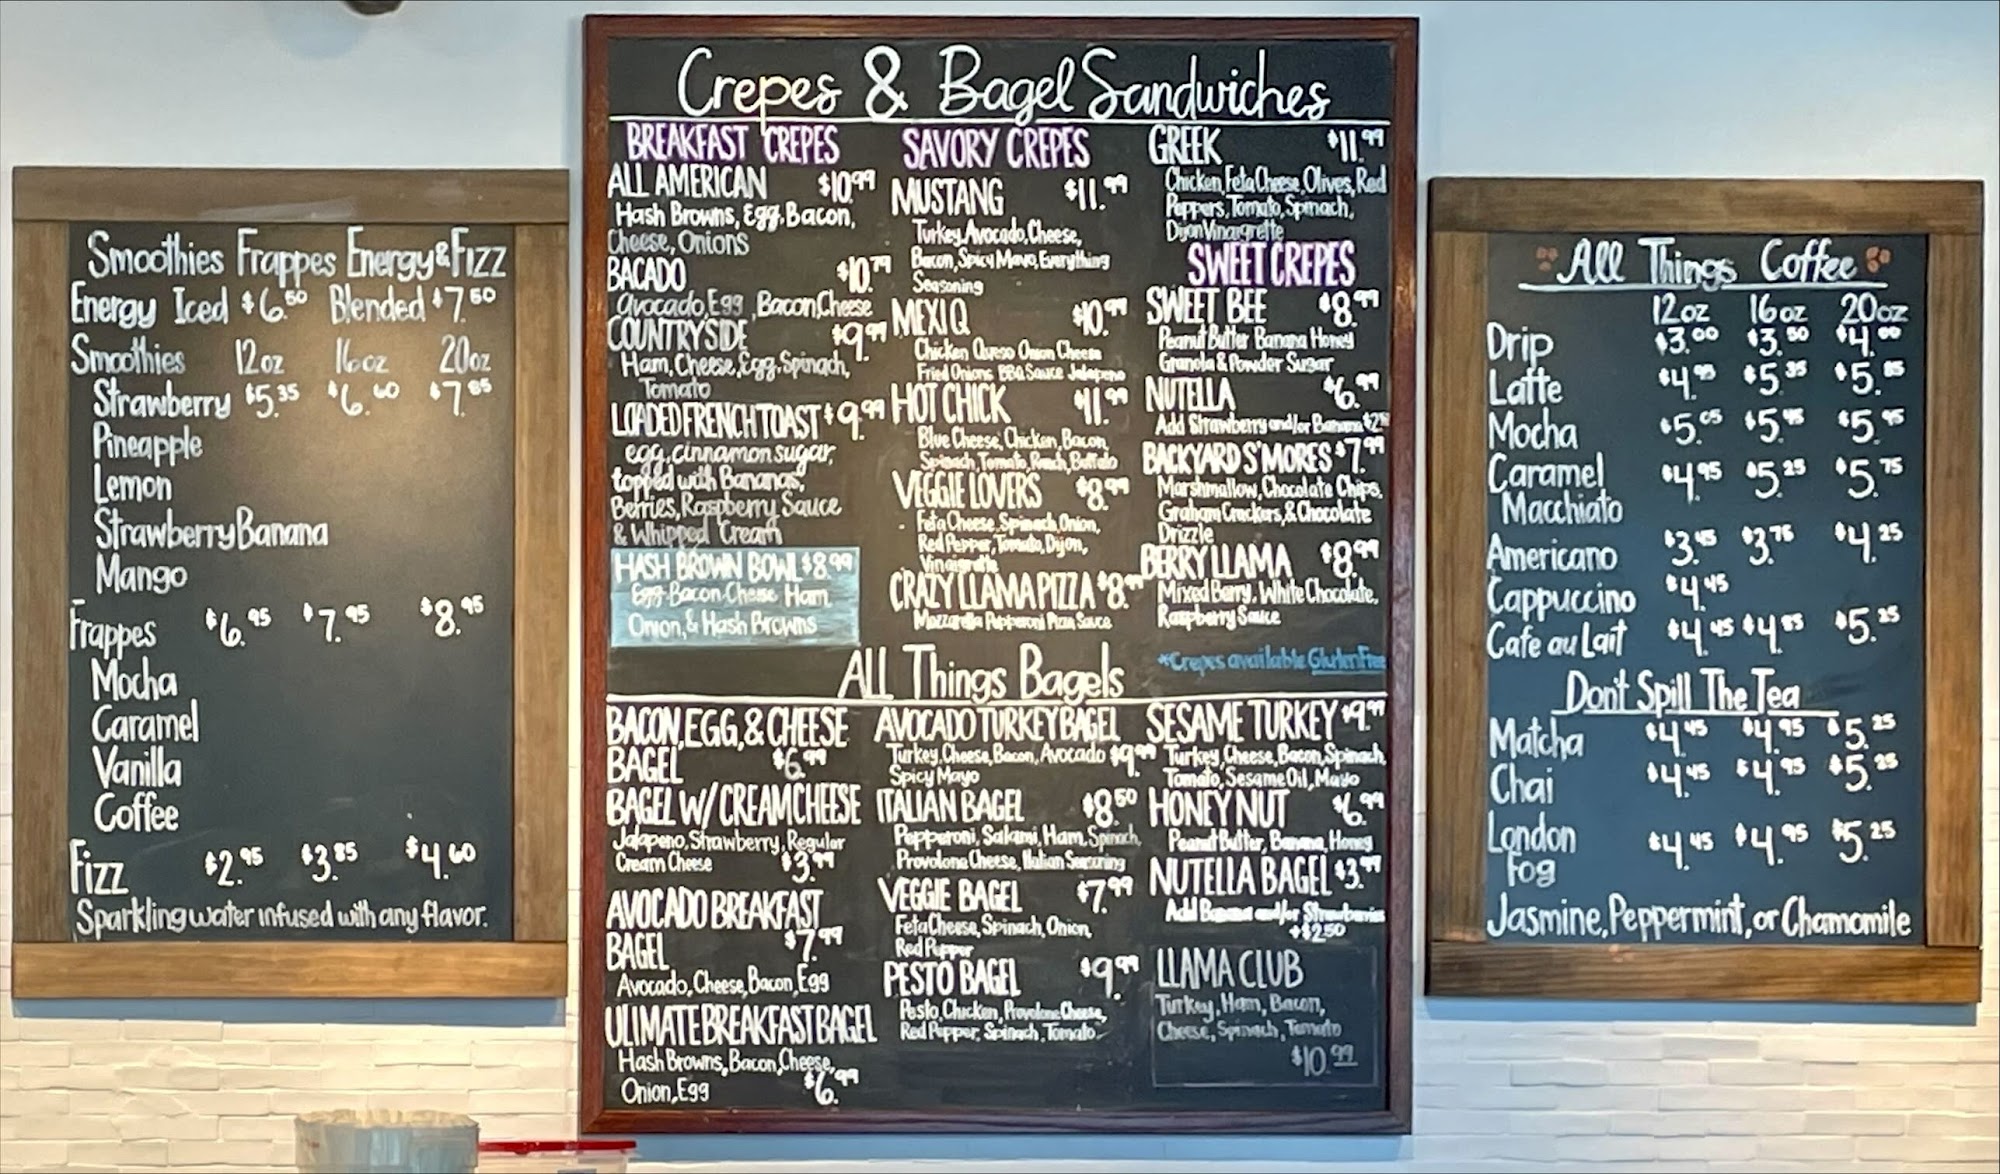 Smoothies Frappes Energy & Fizz
Energy Iced $6.50 Blended $7.50
Smoothies 12oz 16oz 20oz
Strawberry $5.35 $6.60 $7.85
Pineapple
Lemon
Strawberry Banana
Mango
Frappes $6.95 $7.95 $8.95
Mocha
Caramel
Vanilla
Coffee
Fizz $2.95 $3.85 $4.60
Sparkling water infused with any flavor.
Crepes & Bagel Sandwiches
BREAKFAST CREPES
ALL AMERICAN $10.99
Hash Browns, Egg, Bacon,
Cheese, Onions
BACADO $10.79
Avocado, Egg, Bacon, Cheese
COUNTRYSIDE $9.99
Ham, Cheese, Egg, Spinach,
Tomato
LOADED FRENCH TOAST $9.99
egg, cinnamon sugar,
topped with Bananas,
Berries, Raspberry Sauce
& Whipped Cream
HASH BROWN BOWL $8.99
Egg Bacon Cheese Ham
Onion, & Hash Browns
SAVORY CREPES
MUSTANG $11.99
Turkey, Avocado, Cheese,
Bacon, Spicy Mayo, Everything
Seasoning
MEXI Q $10.99
Chicken Queso Onion Cheese
Fried Onions BBQ Sauce Jalapeno
HOT CHICK $11.99
Blue Cheese, Chicken, Bacon
Spinach, Tomato, Ranch, Buffalo
VEGGIE LOVERS $8.99
Feta Cheese, Spinach, Onion,
Red Pepper, Tomato, Dijon,
Vinaigrette
CRAZY LLAMA PIZZA $8.99
Mozzarella Pepperoni Pizza Sauce
GREEK $11.99
Chicken, Feta Cheese, Olives, Red
Peppers, Tomato, Spinach,
Dijon Vinaigrette
SWEET CREPES
SWEET BEE $8.99
Peanut Butter Banana Honey
Granola & Powder Sugar
NUTELLA $6.99
Add Strawberry and/or Banana $2.50
BACKYARD S'MORES $7.99
Marshmallow, Chocolate Chips,
Graham Crackers, & Chocolate
Drizzle
BERRY LLAMA $8.99
Mixed Berry, White Chocolate,
Raspberry Sauce
*Crepes available Gluten Free
ALL Things Bagels
BACON, EGG, & CHEESE
BAGEL $6.99
BAGEL W/ CREAM CHEESE
Jalapeno, Strawberry, Regular
Cream Cheese $3.99
AVOCADO BREAKFAST
BAGEL $7.99
Avocado, Cheese, Bacon, Egg
ULIMATE BREAKFAST BAGEL
Hash Browns, Bacon, Cheese,
Onion, Egg $6.99
AVOCADO TURKEY BAGEL
Turkey, Cheese, Bacon, Avocado $9.99
Spicy Mayo
ITALIAN BAGEL $8.50
Pepperoni, Salami, Ham, Spinach,
Provolone Cheese, Italian Seasoning
VEGGIE BAGEL $7.99
Feta Cheese, Spinach, Onion,
Red Pepper
PESTO BAGEL $9.99
Pesto, Chicken, Provolone Cheese,
Red Pepper, Spinach, Tomato
SESAME TURKEY $9.99
Turkey, Cheese, Bacon, Spinach,
Tomato, Sesame Oil, Mayo
HONEY NUT $6.99
Peanut Butter, Banana, Honey
NUTELLA BAGEL $3.99
Add Banana and/or Strawberries
+$2.50
LLAMA CLUB
Turkey, Ham, Bacon,
Cheese, Spinach, Tomato
$10.99
All Things Coffee
12oz 16oz 20oz
Drip $3.00 $3.50 $4.00
Latte $4.95 $5.35 $5.85
Mocha $5.05 $5.45 $5.95
Caramel $4.95 $5.25 $5.75
Macchiato
Americano $3.45 $3.75 $4.25
Cappuccino $4.45
Cafe au Lait $4.45 $4.85 $5.25
Dont Spill The Tea
Matcha $4.45 $4.95 $5.25
Chai $4.45 $4.95 $5.25
London $4.45 $4.95 $5.25
Fog
Jasmine, Peppermint, or Chamomile